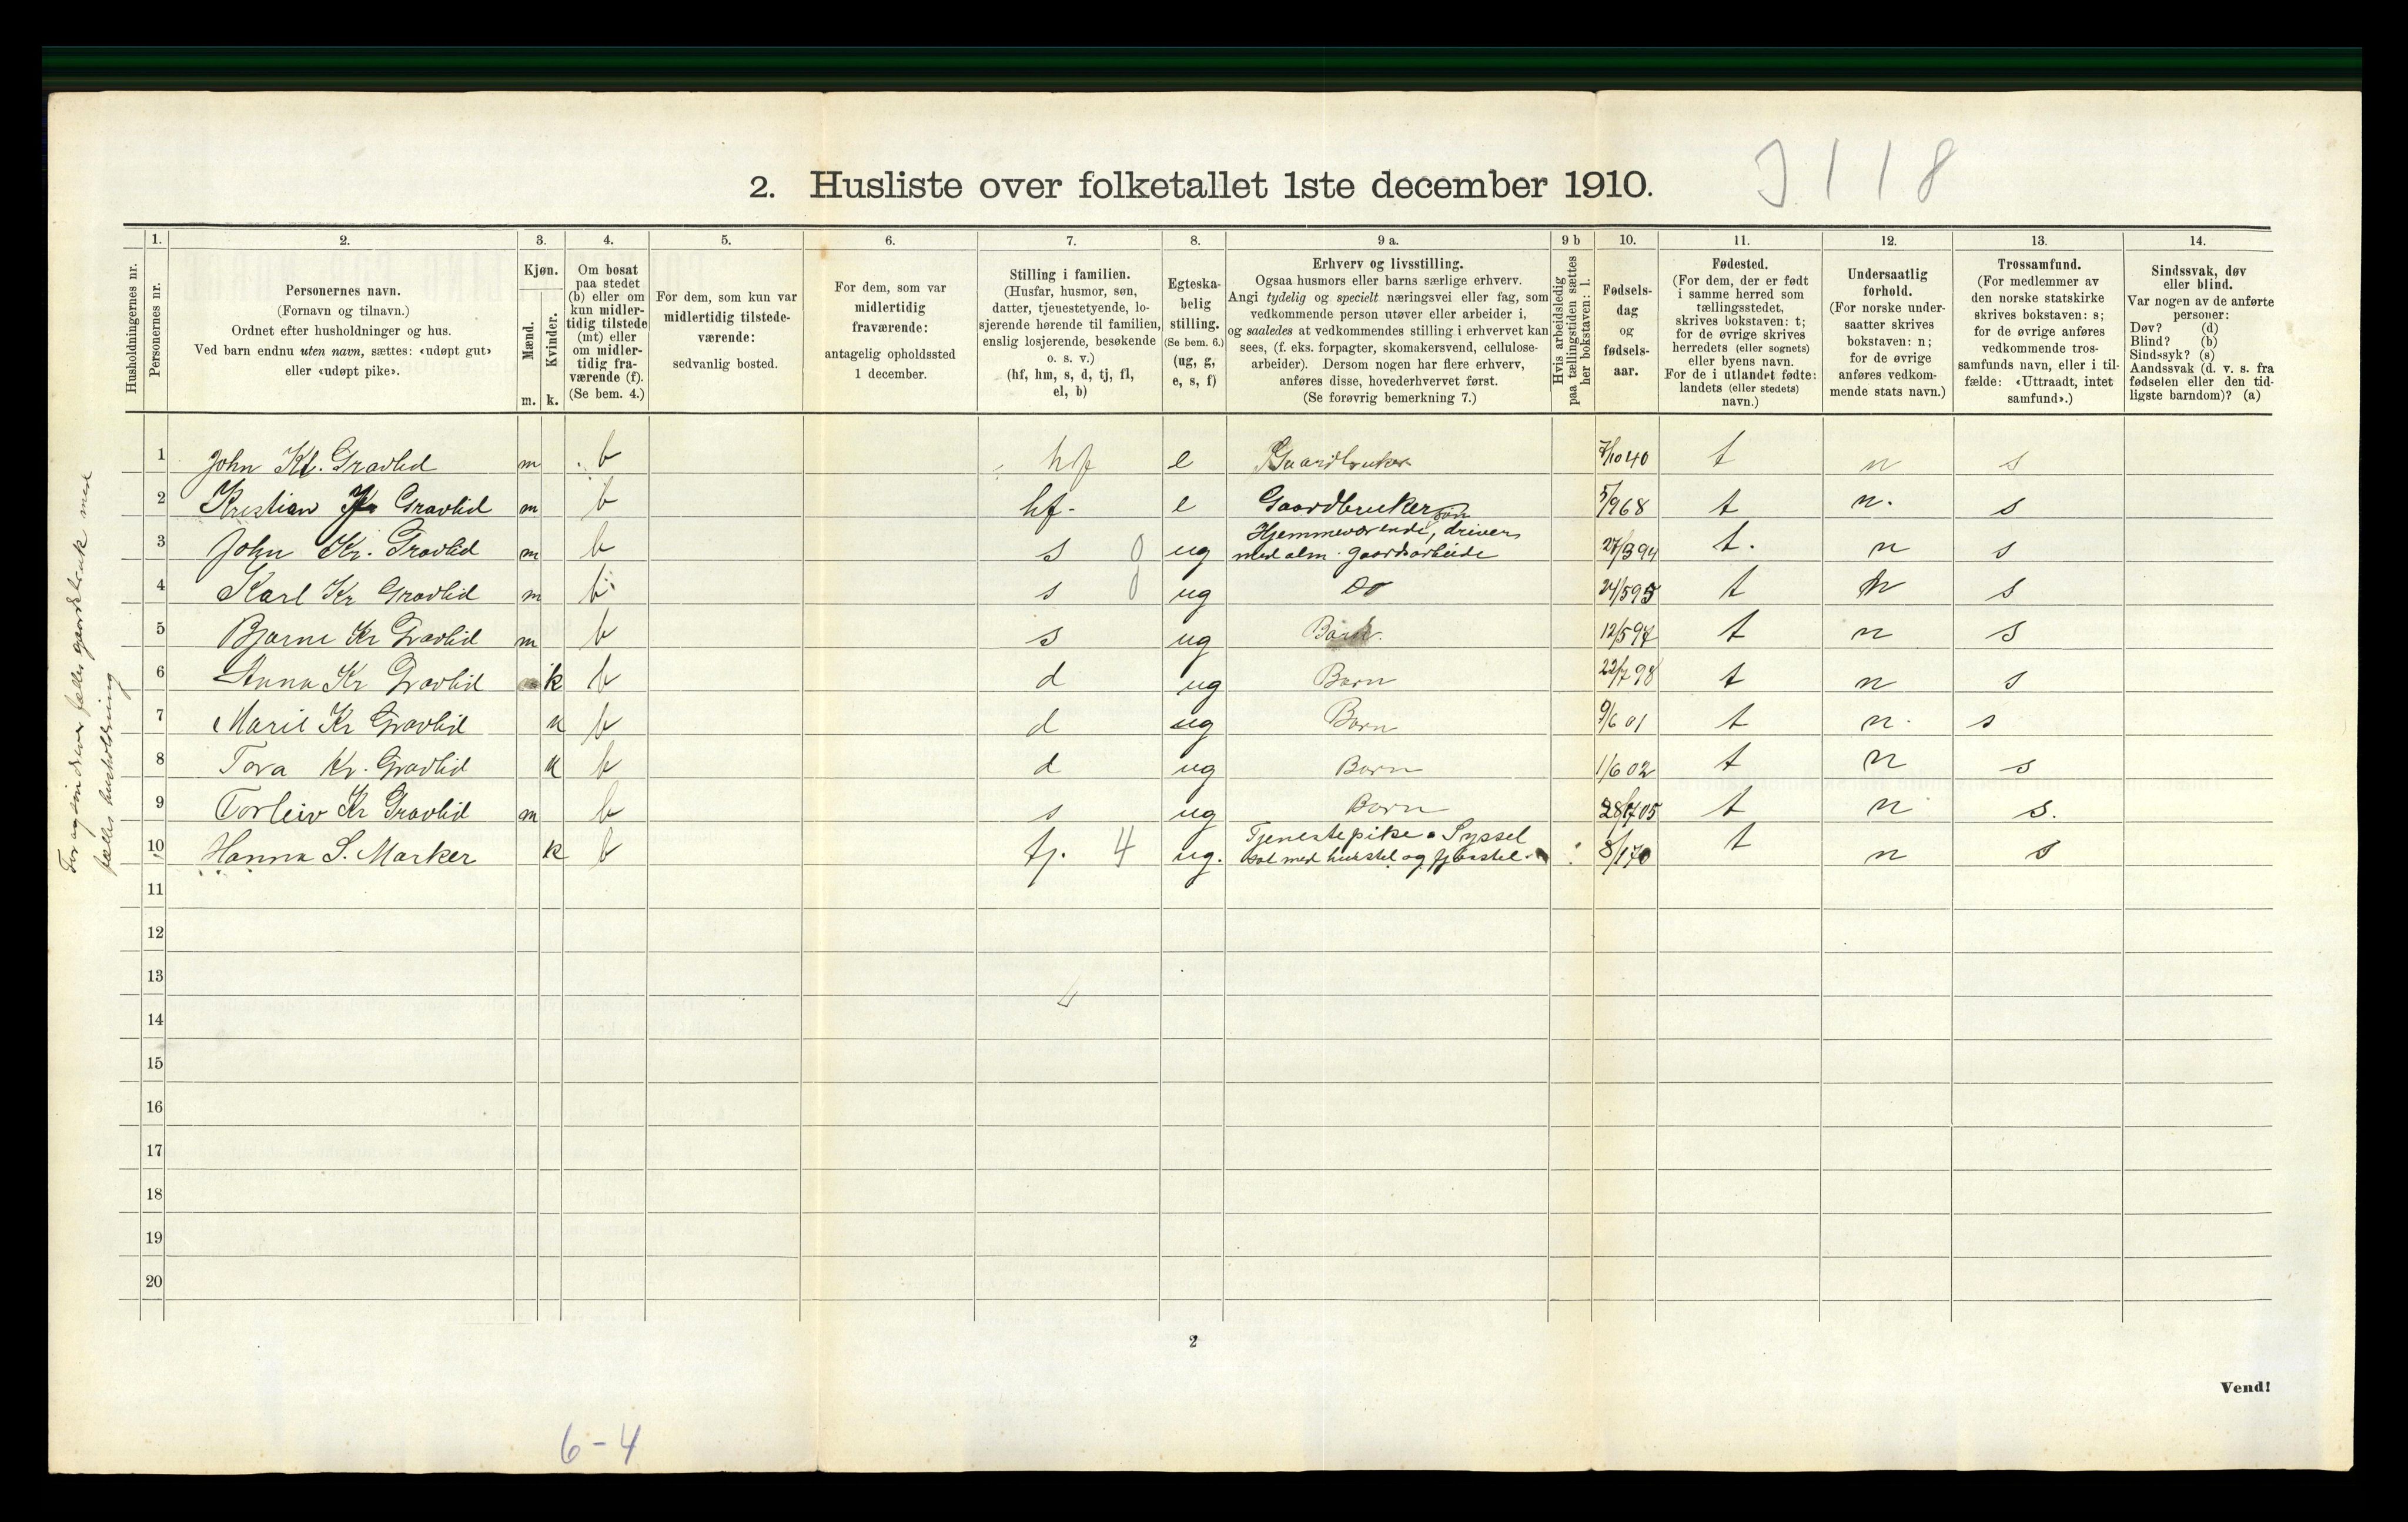 J 118
2. Husliste over folketallet 1ste december 1910.
Husholdningernes nr.
1. Personernes nr.
2. Personernes navn.
(Fornavn og tilnavn.)
Ordnet efter husholdninger og hus.
Ved barn endnu uten navn, sættes: «udøpt gut»
eller «udøpt pike».
3. Kjøn.
Mænd. m.
Kvinder. k.
4. Om bosat
paa stedet
(b) eller om
kun midler-
tidig tilstede
(mt) eller
om midler-
tidig fra-
værende (f).
(Se bem. 4.)
5. For dem, som kun var
midlertidig tilstede-
værende:
sedvanlig bosted.
6. For dem, som var
midlertidig
fraværende:
antagelig opholdssted
1 december.
7. Stilling i familien.
(Husfar, husmor, søn,
datter, tjenestetyende, lo-
sjerende hørende til familien,
enslig losjerende, besøkende
o. s. v.)
(hf, hm, s, d, tj, fl,
el, b)
8. Egteska-
belig
stilling.
(Se bem. 6.)
(ug, g,
e, s, f)
9 a. Erhverv og livsstilling.
Ogsaa husmors eller barns særlige erhverv.
Angi tydelig og specielt næringsvei eller fag, som
vedkommende person utøver eller arbeider i,
og saaledes at vedkommendes stilling i erhvervet kan
sees, (f. eks. forpagter, skomakersvend, cellulose-
arbeider). Dersom nogen har flere erhverv,
anføres disse, hovederhvervet først.
(Se forøvrig bemerkning 7.)
9 b Hvis arbeidsledig
paa tællingstiden sættes
her bokstaven: l.
10. Fødsels-
dag
og
fødsels-
aar.
11. Fødested.
(For dem, der er født
i samme herred som
tællingsstedet,
skrives bokstaven: t;
for de øvrige skrives
herredets (eller sognets)
eller byens navn.
For de i utlandet fødte:
landets (eller stedets)
navn.)
12. Undersaatlig
forhold.
(For norske under-
saatter skrives
bokstaven: n;
for de øvrige
anføres vedkom-
mende stats navn.)
13. Trossamfund.
(For medlemmer av
den norske statskirke
skrives bokstaven: s;
for de øvrige anføres
vedkommende tros-
samfunds navn, eller i til-
fælde: «Uttraadt, intet
samfund».)
14. Sindssvak, døv
eller blind.
Var nogen av de anførte
personer:
Døv? (d)
Blind? (b)
Sindssyk? (s)
Aandssvak (d. v. s. fra
fødselen eller den tid-
ligste barndom)? (a)
1 John Kl. Gravlid m b hf e Gaardbruker 7/10 40 t n s
2 Kristian Gravlid m b hf- e Gaardbruker søn 5/9 68 t n. s
3 John Kr. Gravlid m b s 0 ug Hjemmeværende, driver
med alm. gaardsarbeide 27/3 94 t. n s
4 Karl Kr Gravlid m b s 0 ug Do 24/5 95 t n s
5 Bjarne Kr Gravlid m b s ug Barn. 12/5 97 t n s
6 Anna Kr Gravlid k b d ug Barn 22/7 98 t n s
7 Marit Kr Gravlid k b d ug Barn 9/6 01 t n. s
8 Tora Kr. Gravlid k b d ug Barn 1/6 02 t n s
9 Torleiv Kr Gravlid m b s ug Barn 28/7 05 t n s.
10 Hanna S. Marker k b tj. 4 ug. Tjenestepike. Syssel
sat med husstel og fjøsstel. 8/1 70 t n s
11
12
13
4
14
15
16
17
18
19
20
Far og søn driver fælles gaardsbruk med
fælles husholdning
2
Vend!
6-4